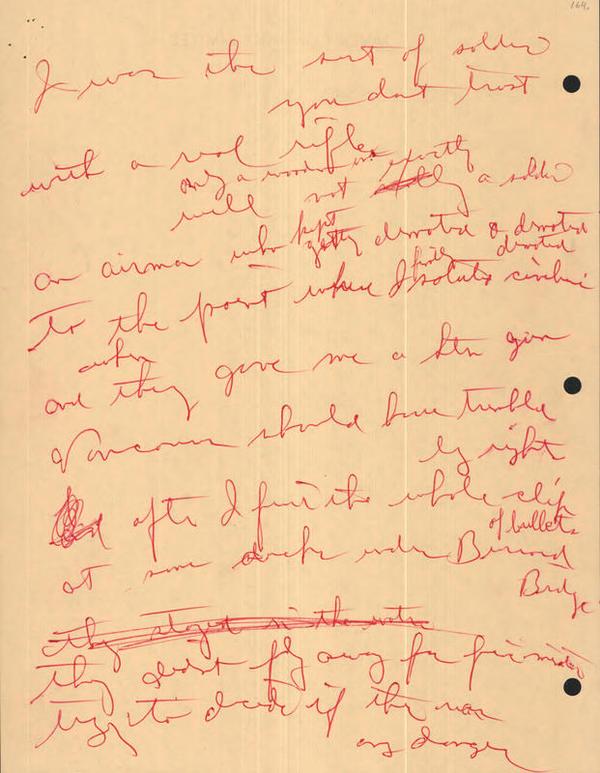 164.
I was the sort of soldier
you dont trust
with a real rifle
only a wooden one exactly
well not a soldier
an airman who kept
getting demoted & demoted
demoted
to the point where I saluted civilians
and when they gave me a sten gun
Vancouver should have trembled
right
after I fired the whole clip
of bullets
at some ducks under Burrard
Bridge
they stayed in the water
they didnt fly away for five minutes
trying to decide if there was
any danger